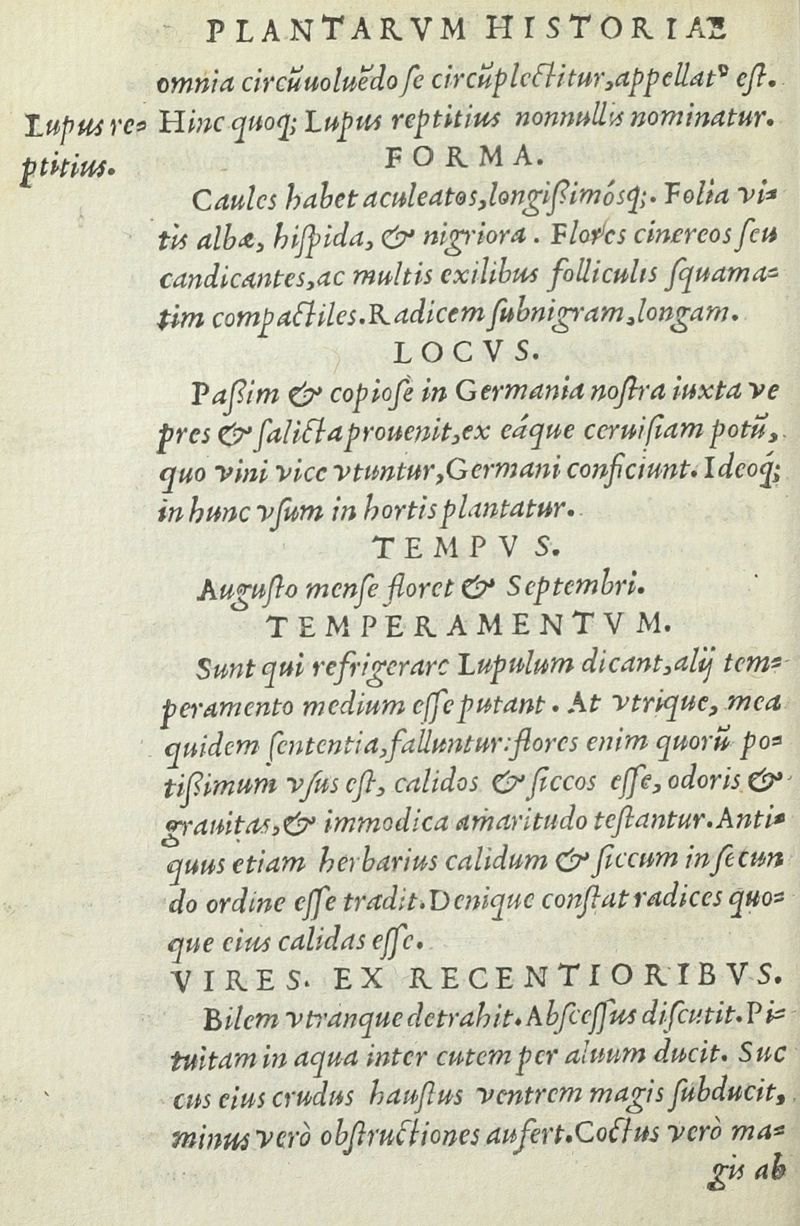 PLANTARVM HISTORIAE
omnia circũuoluẽdo se circũplectitur, appellatꝰ est.
Lupus re-
ptitius.
Hinc quoq; Lupus reptitius nonnullis nominatur.
FORMA.
Caules habet aculeatos, longißimósq;. Folia vi-
tis albæ, hispida, & nigriora. Flores cinereos seu
candicantes, ac multis exilibus folliculis squama-
tim compactiles. Radicem subnigram, longam.
LOCVS.
Paßim & copiosè in Germania nostra iuxta ve
pres & salicta prouenit, ex eáque ceruisiam potũ,
quo vini vice vtuntur, Germani conficiunt. Ideoq́;
in hunc vsum in hortis plantatur.
TEMPVS.
Augusto mense floret & Septembri.
TEMPERAMENTVM.
Sunt qui refrigerare Lupulum dicant, alij tem-
peramento medium esse putant. At vtrique, mea
quidem sententia, falluntur: flores enim quorũ po-
tißimum vsus est, calidos & siccos esse, odoris &
grauitas, & immodica amaritudo testantur. Anti-
quus etiam herbarius calidum & siccum in secun
do ordine esse tradit. Denique constat radices quo-
que eius calidas esse.
VIRES. EX RECENTIORIBVS.
Bilem vtranque detrahit. Abscessus discutit. Pi-
tuitam in aqua inter cutem per aluum ducit. Suc
cus eius crudus haustus ventrem magis subducit,
minus verò obstructiones aufert. Coctus verò ma-
gis ab